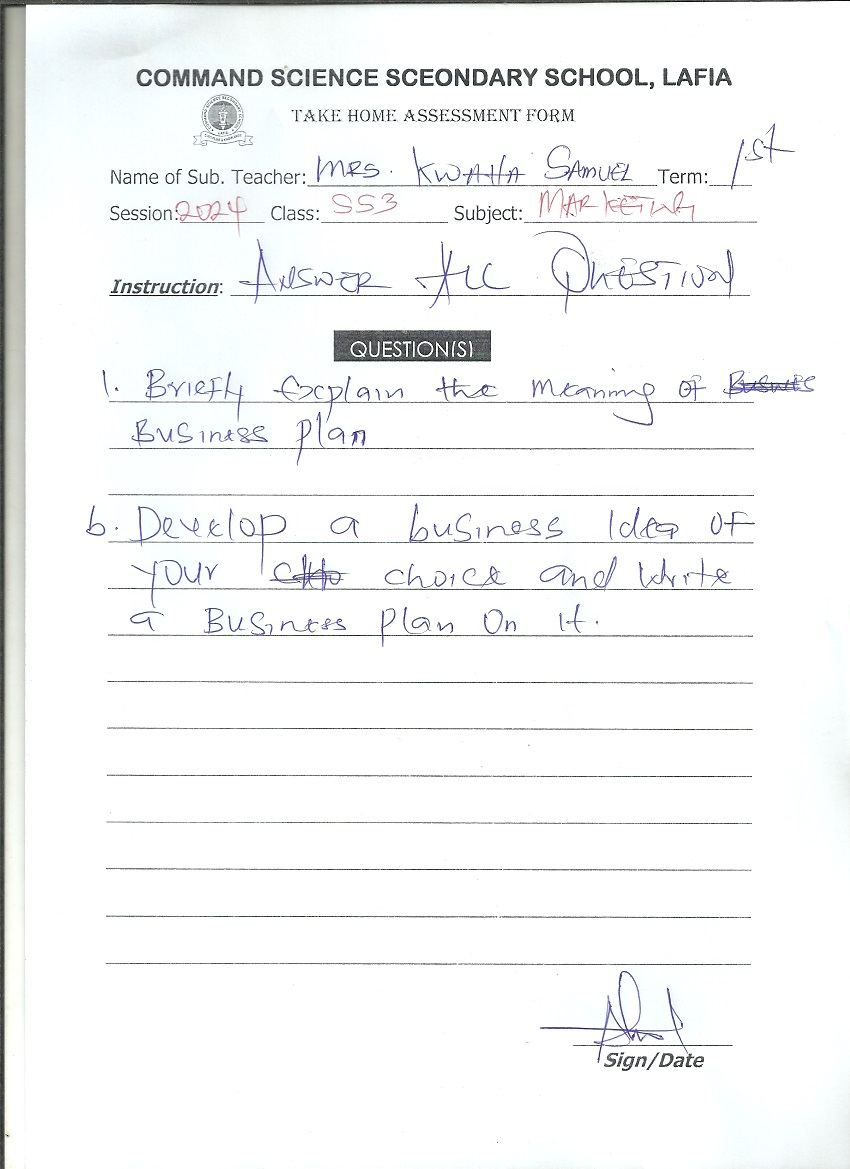 COMMAND SCIENCE SCEONDARY SCHOOL, LAFIA
TAKE HOME ASSESSMENT FORM
Name of Sub. Teacher: MRS. KWAHA SAMUEL Term: 1st
Session: 2024 Class: SS3 Subject: MARKETING
Instruction: ANSWER ALL QUESTION
QUESTION(S)
1. Briefly Explain the meaning of
Business Plan
b. Develop a business Idea of
your choice and Write
a Business Plan On it.
Sign/Date